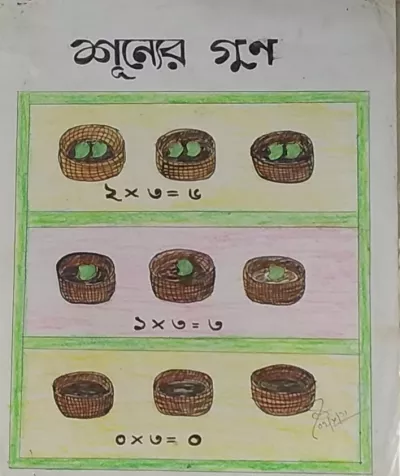 শূন্যের গুণ
২ × ৩ = ৬
১ × ৩ = ৩
০ × ৩ = ০